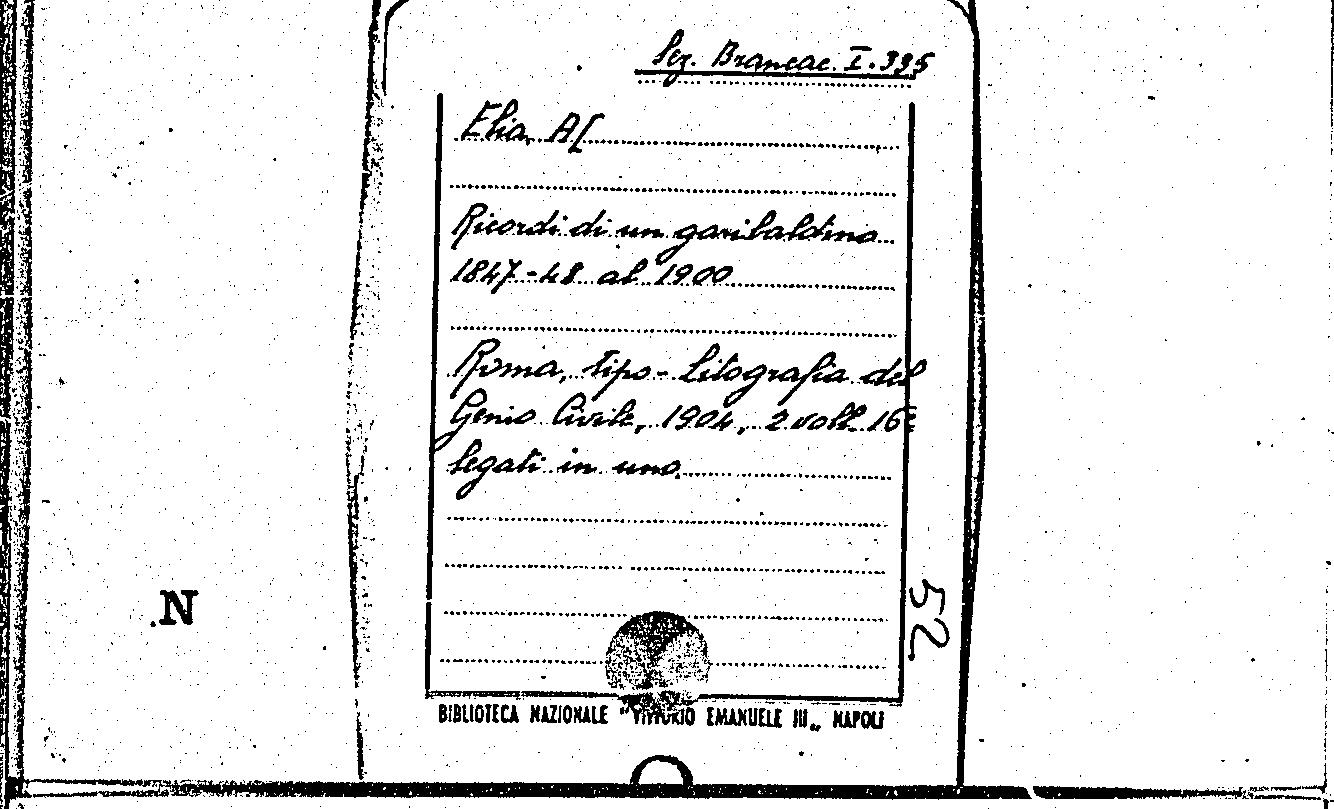 Sez. Brancac. I. 395
Elia, A[
Ricordi di un garibaldino
1847-48 al 1900
Roma, tipo-litografia del
Genio Civile, 1904, 2 voll. 16º
legati in uno.
52
N
BIBLIOTECA NAZIONALE "VITTORIO EMANUELE III„ NAPOLI